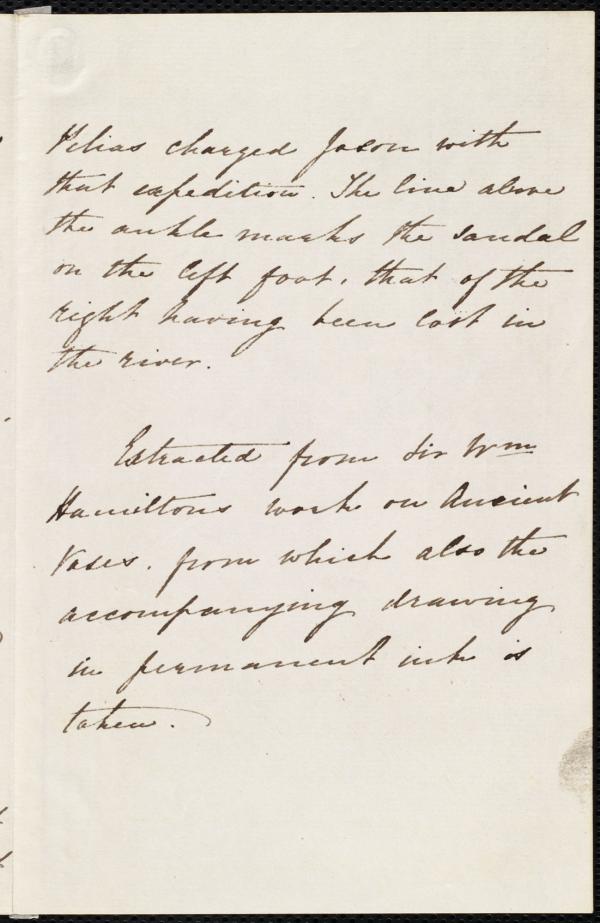 Pelias charged Jason with
that expedition. The line above
the ankle marks the sandal
on the left foot, that of the
right having been lost in
the river.
Extracted from Sir Wm
Hamiltons work on Ancient
Vases. from which also the
accompanying drawing
in permanent ink is
taken.